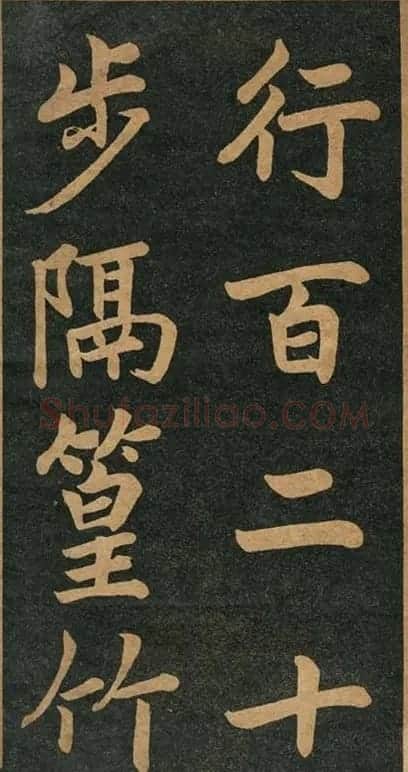 行百二十
步隔篁竹
Shufaziliao.COM